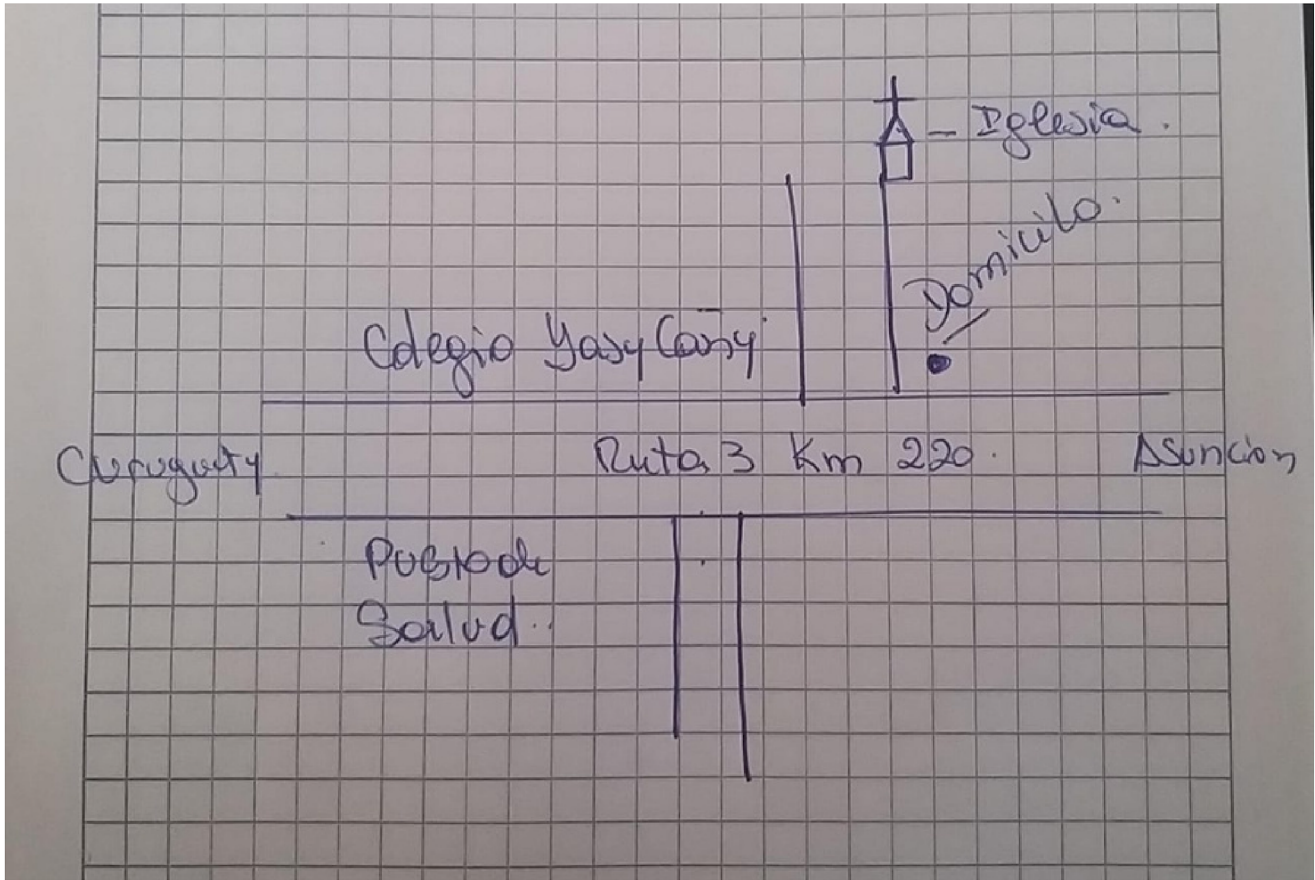 Iglesia.
Domicilo.
Colegio Yasy Cañy
Curuguaty
Ruta 3 Km 220.
Asunción
Puesto de
Salud..